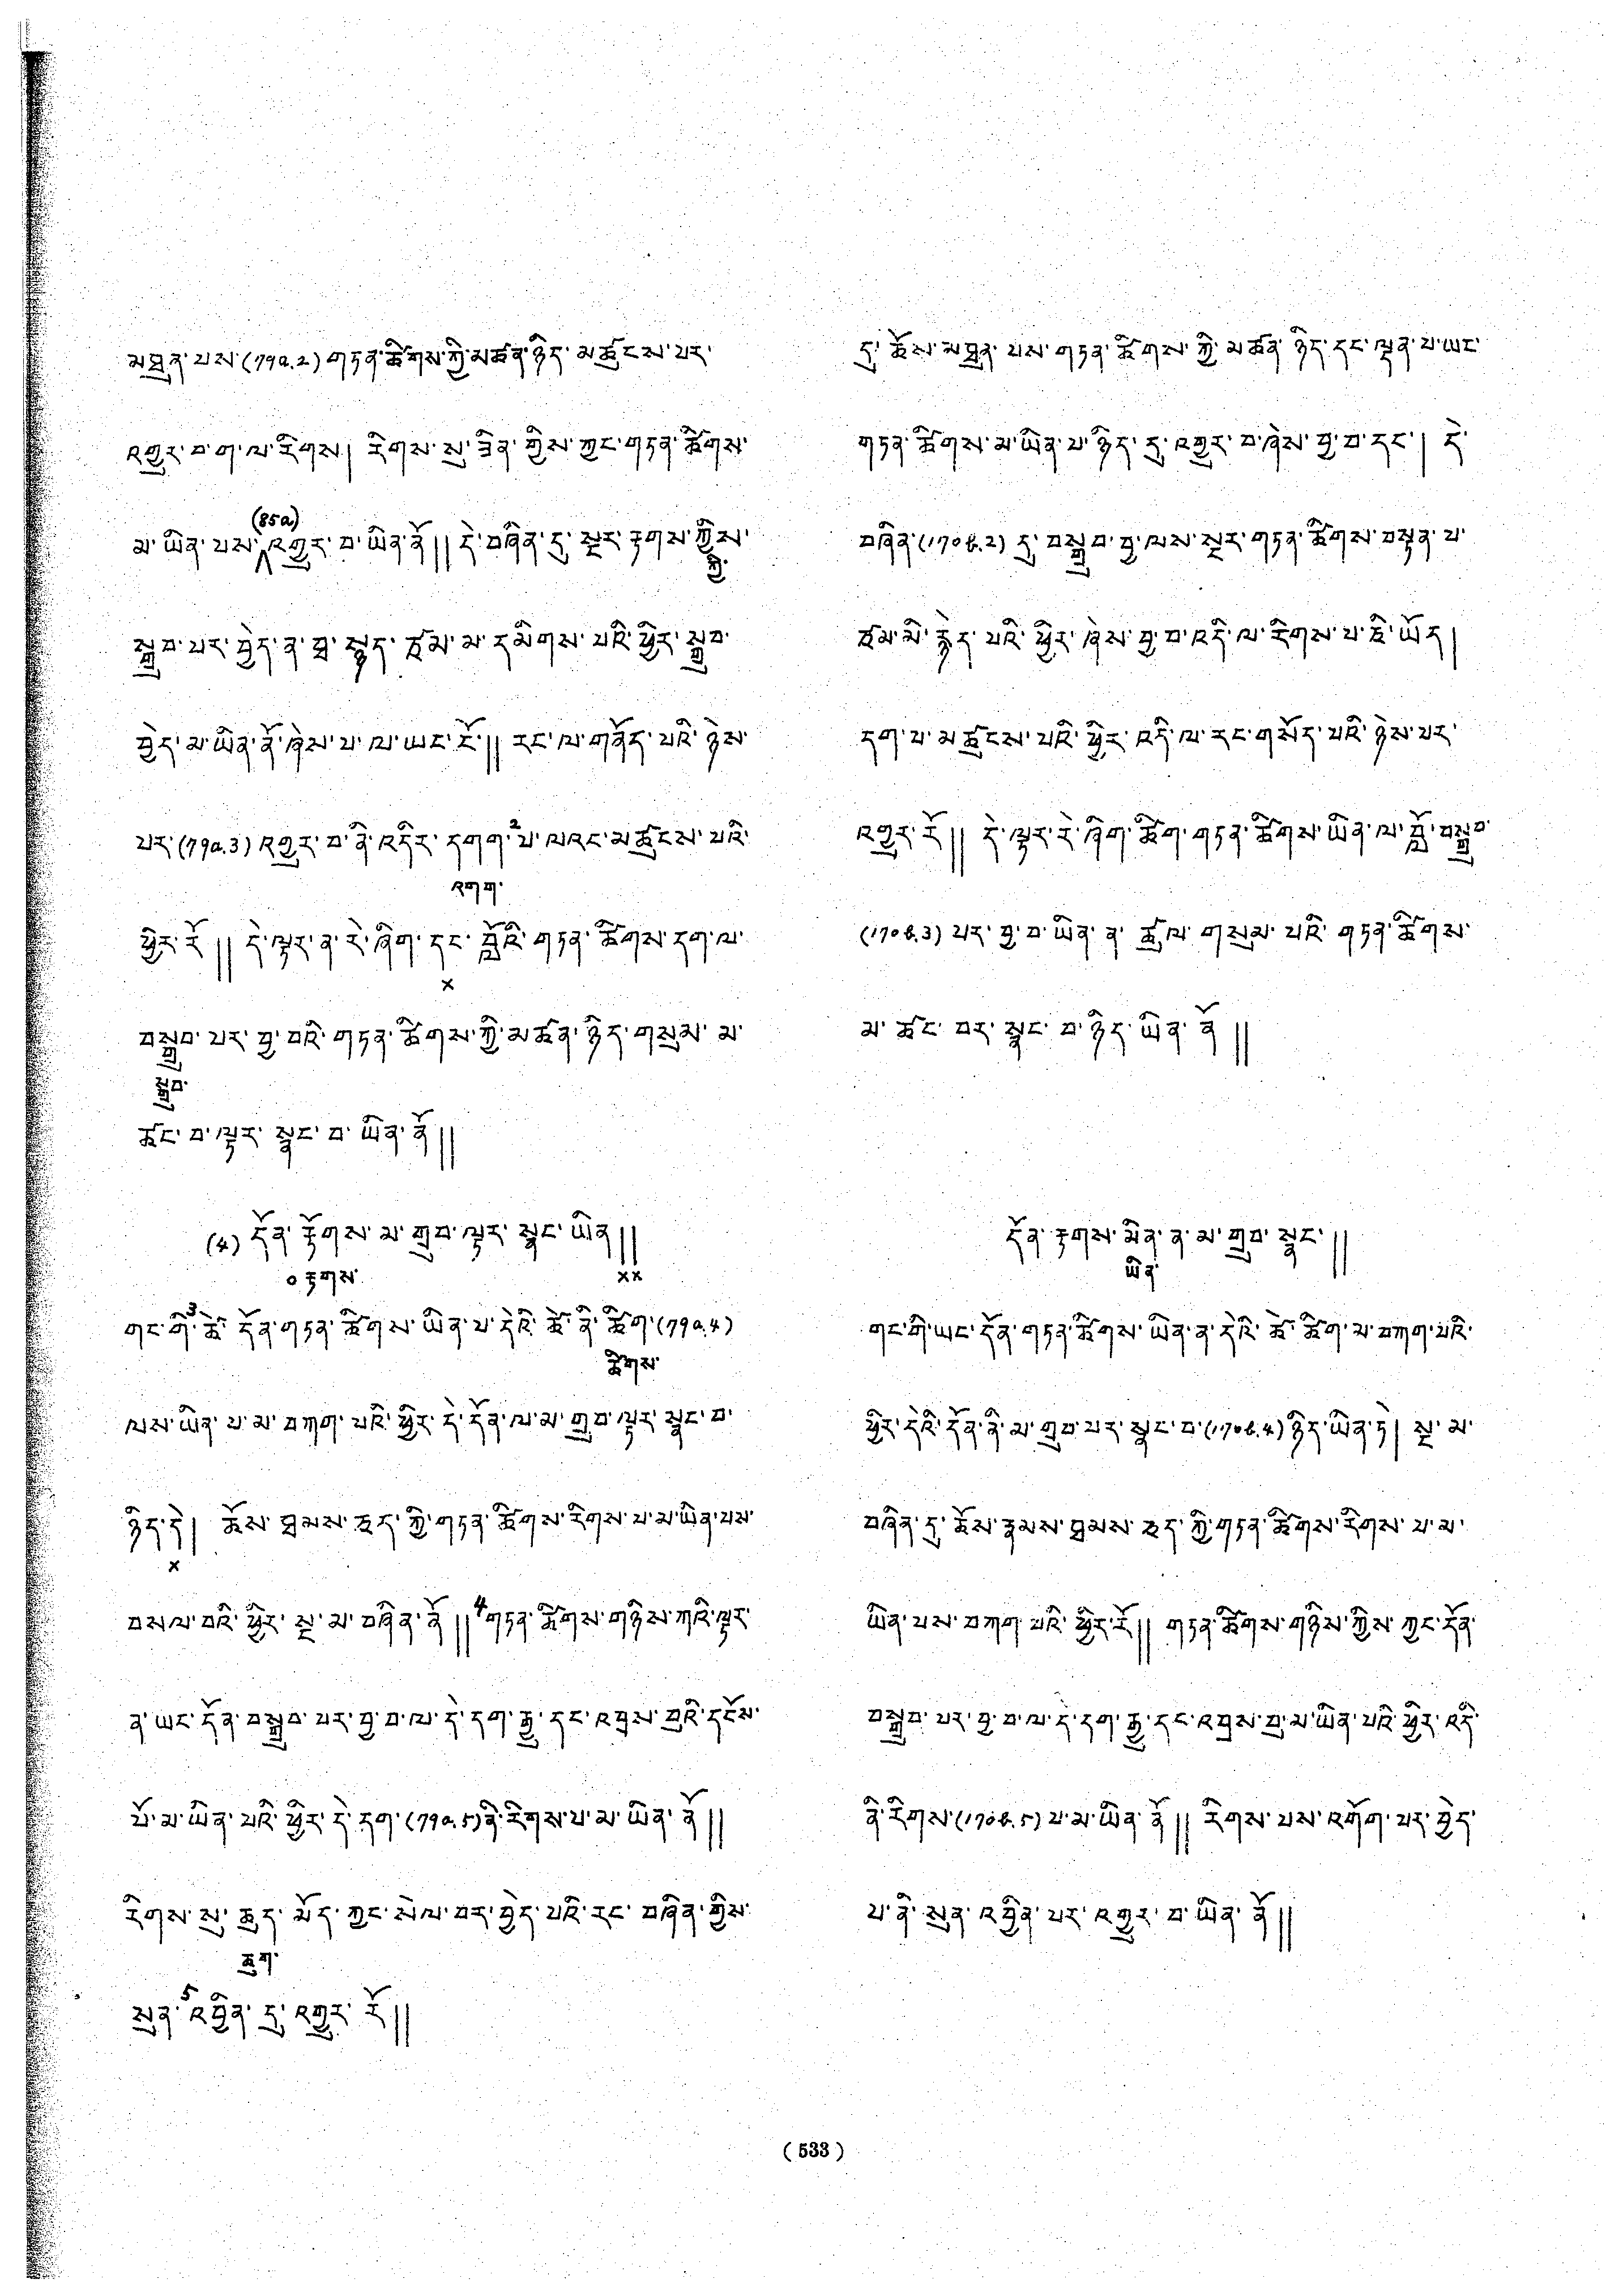 མཐུན་པས་(79a.2)གཏན་ཚིགས་ཀྱི་མཚན་ཉིད་མཚུངས་པར་
འགྱུར་བ་ག་ལ་རིགས། རིགས་སུ་ཟིན་གྱིས་ཀྱང་གཏན་ཚིགས་
(85a)
མ་ཡིན་པས་འགྱུར་བ་ཡིན་ནོ།། དེ་བཞིན་དུ་སྔར་རྟགས་ཀྱིས་
ཀྱི་
སྒྲུབ་པར་བྱེད་ན་བྷ་སྙད་ཙམ་མ་དམིགས་པའི་ཕྱིར་སྒྲུབ་
བྱེད་མ་ཡིན་ནོ་ཞེས་པ་ལ་ཡང་ངོ་།། རང་ལ་གནོད་པའི་ཉེས་
པར་(79a.3)འགྱུར་བ་ནི་འདིར་དགག་2པ་ལའང་མཚུངས་པའི་
འགག་
ཕྱིར་རོ།། དེ་ལྟར་ན་རེ་ཞིག་དང་བློའི་གཏན་ཚིགས་དག་ལ་
x
བསྒྲུབ་པར་བྱ་བའི་གཏན་ཚིགས་ཀྱི་མཚན་ཉིད་གསུམ་མ་
སྒྲུབ་
ཚང་བ་ལྟར་སྣང་བ་ཡིན་ནོ།།
(4) དོན་རྟོགས་མ་གྲུབ་ལྟར་སྣང་ཡིན།།
o རྟགས་ xx
གང་གི་3ཚེ་དོན་གཏན་ཚིགས་ཡིན་པ་དེའི་ཚེ་ནི་ཚིག་(79a.4)
ཚིགས་
ལས་ཡིན་པ་མ་བཀག་པའི་ཕྱིར་དེ་དོན་ལ་མ་གྲུབ་ལྟར་སྣང་བ་
ཉིད་དེ། ཆོས་ཐམས་ཅད་ཀྱི་གཏན་ཚིགས་རིགས་པ་མ་ཡིན་པས་
x
བསལ་བའི་ཕྱིར་སྔ་མ་བཞིན་ནོ།། 4གཏན་ཚིགས་གཉིས་ཀའི་ལྟར་
ན་ཡང་དོན་བསྒྲུབ་པར་བྱ་བ་ལ་དེ་དག་རྒྱུ་དང་འབྲས་བུའི་དངོས་
པོ་མ་ཡིན་པའི་ཕྱིར་དེ་དག་(79a.5)ནི་རིགས་པ་མ་ཡིན་ནོ།།
རིགས་སུ་ཆུད་མོད་ཀྱང་སེལ་བར་བྱེད་པའི་རང་བཞིན་གྱིས་
ཆུག་
སུན་5འབྱིན་དུ་འགྱུར་རོ།།
དུ་ཆོས་མཐུན་པས་གཏན་ཚིགས་ཀྱི་མཚན་ཉིད་དང་ལྡན་པ་ཡང་
གཏན་ཚིགས་མ་ཡིན་པ་ཉིད་དུ་འགྱུར་བ་ཞེས་བྱ་བ་དང་། དེ་
བཞིན་(170b.2)དུ་བསྒྲུབ་བྱ་ལས་སྔར་གཏན་ཚིགས་བསྟན་པ་
ཙམ་མི་རྙེད་པའི་ཕྱིར་ཞེས་བྱ་བ་འདི་ལ་རིགས་པ་ཅི་ཡོད།
དག་པ་མཚུངས་པའི་ཕྱིར་འདི་ལ་རང་གསོད་པའི་ཉེས་པར་
འགྱུར་རོ།། དེ་ལྟར་རེ་ཞིག་ཚིག་གཏན་ཚིགས་ཡིན་ལ་བློ་བསྒྲུབ་
(170b.3)པར་བྱ་བ་ཡིན་ན་ཚུལ་གསུམ་པའི་གཏན་ཚིགས་
མ་ཚང་བར་སྣང་བ་ཉིད་ཡིན་ནོ།།
དོན་རྟགས་མིན་ན་མ་གྲུབ་སྣང་།།
ཡིན་
གང་གི་ཡང་དོན་གཏན་ཚིགས་ཡིན་ན་དེའི་ཚེ་ཚིག་མ་བཀག་པའི་
ཕྱིར་དེའི་དོན་ནི་མ་གྲུབ་པར་སྣང་བ་(170b.4)ཉིད་ཡིན་ཏེ། སྔ་མ་
བཞིན་དུ་ཆོས་རྣམས་ཐམས་ཅད་ཀྱི་གཏན་ཚིགས་རིགས་པ་མ་
ཡིན་པས་བཀག་པའི་ཕྱིར་རོ།། གཏན་ཚིགས་གཉིས་ཀྱིས་ཀྱང་དོན་
བསྒྲུབ་པར་བྱ་བ་ལ་དེ་དག་རྒྱུ་དང་འབྲས་བུ་མ་ཡིན་པའི་ཕྱིར་འདི་
ནི་རིགས་(170b.5)པ་མ་ཡིན་ནོ།། རིགས་པས་འགོག་པར་བྱེད་
པ་ནི་སུན་འབྱིན་པར་འགྱུར་བ་ཡིན་ནོ།།
(533)